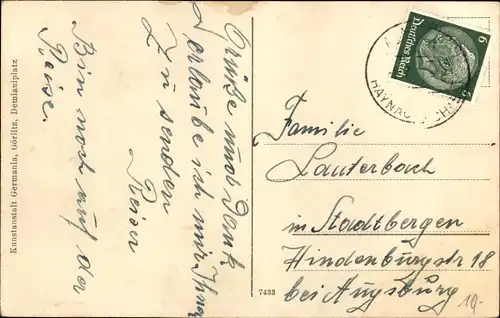 Kunstanstalt Germania, Görlitz, Demianiplatz
Grüße und Dank
erlaube ich mir Ihnen
zu senden
Reiser
Bin noch auf der
Reise.
7433
Deutsches Reich
6
6
HAYNAU
Familie
Lauterbach
in Stadtbergen
Hindenburgstr 18
bei Augsburg
10.-